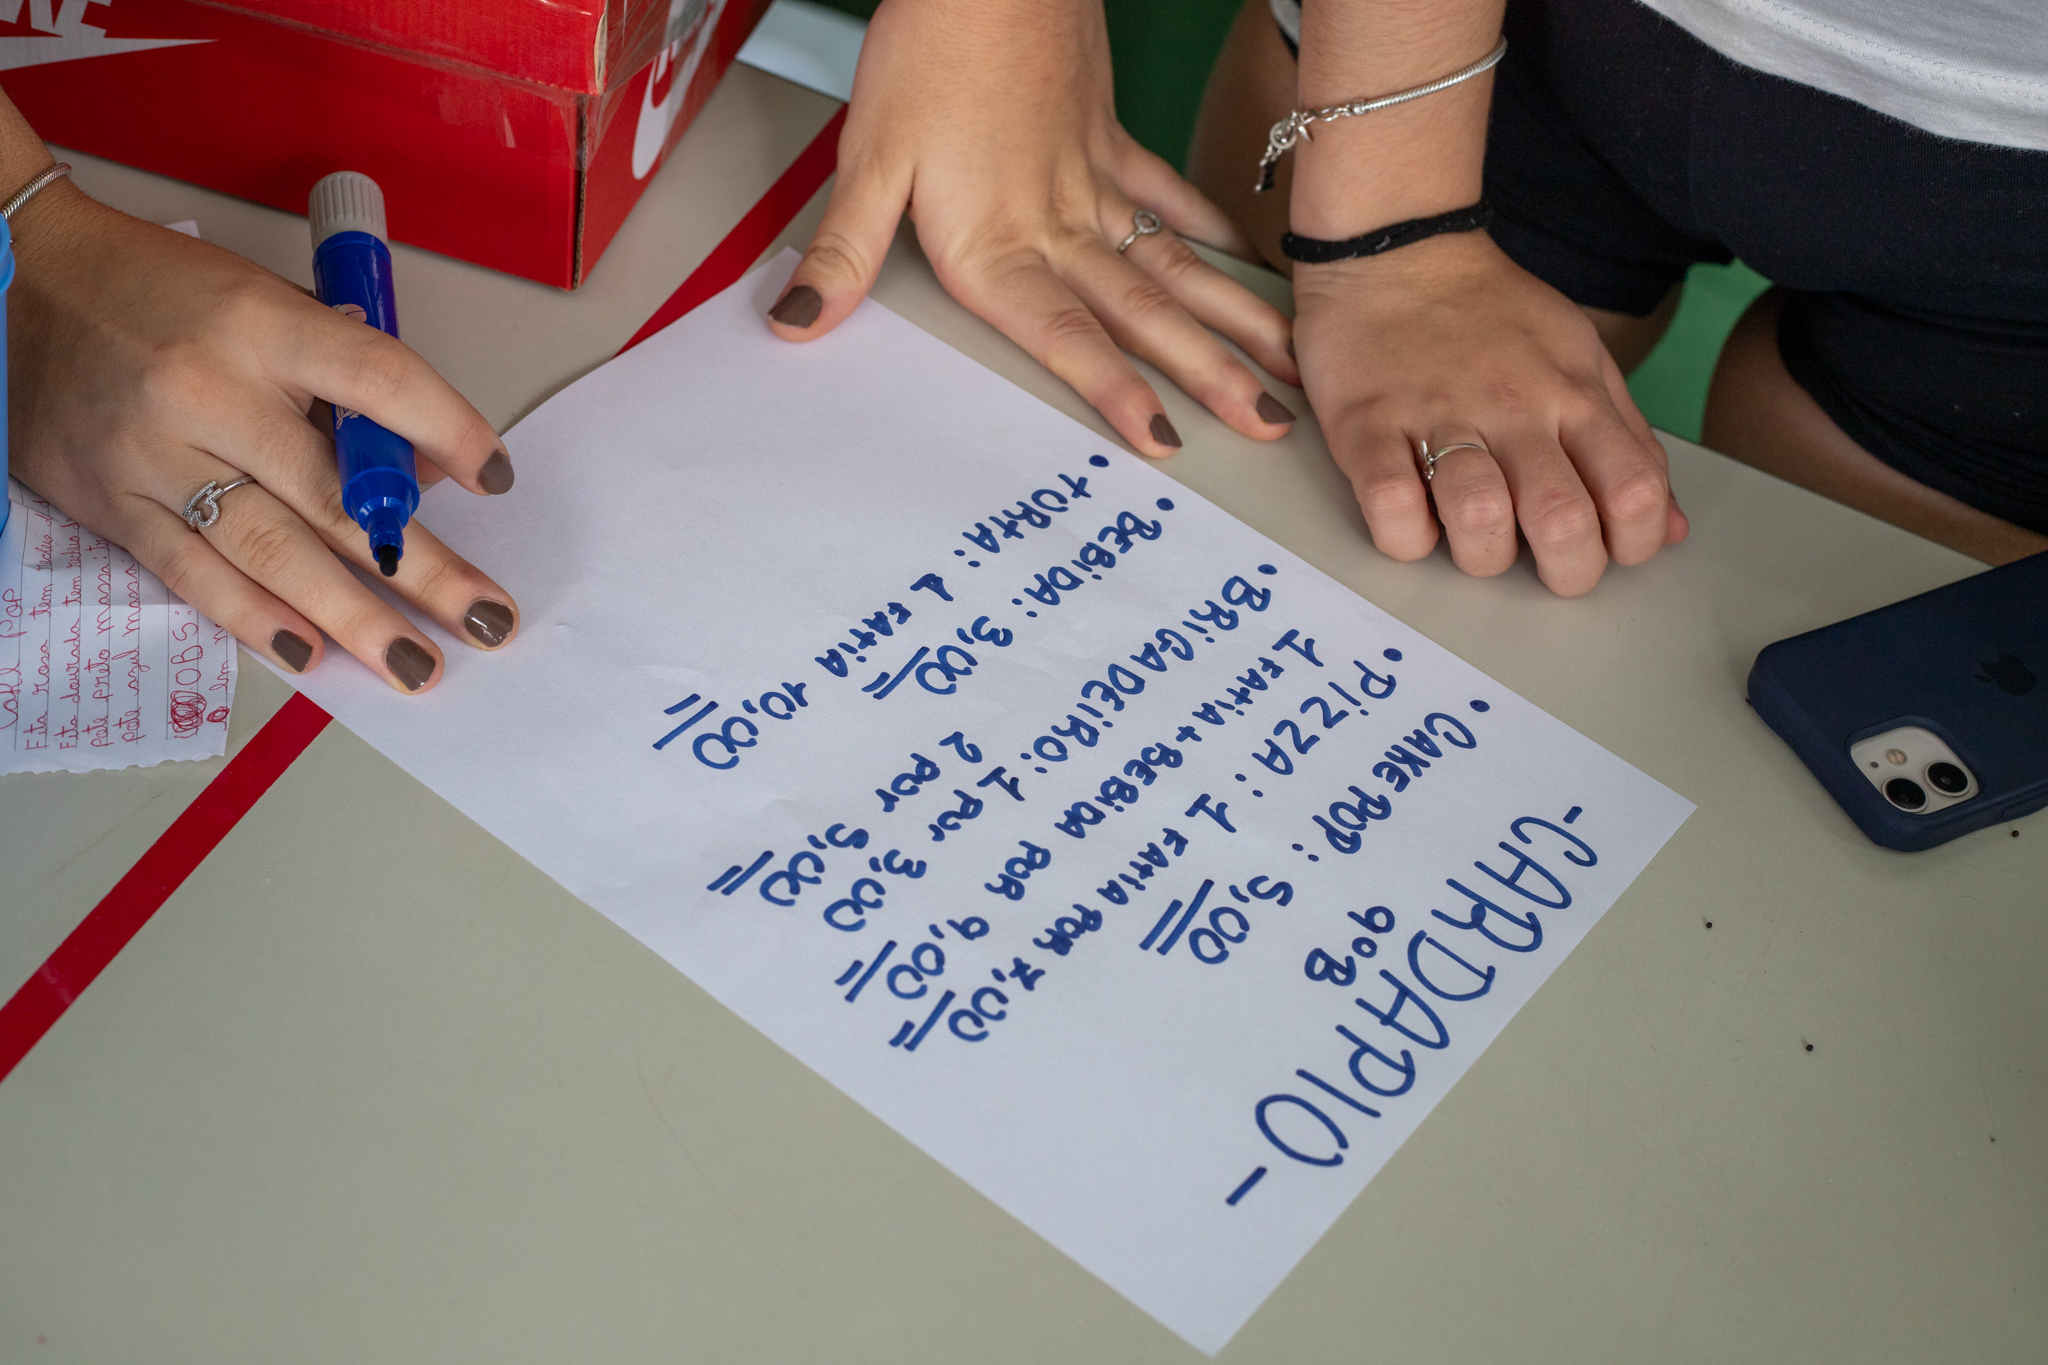 - CARDAPIO -
9º B
• CAKE POP: 5,00
• PIZZA: 1 FATIA POR 7,00
1 FATIA + BEBIDA POR 9,00
• BRIGADEIRO: 1 POR 3,00
2 POR 5,00
• BEBIDA: 3,00
• TORTA: 1 FATIA 10,00
Cake pop
Fita rosa tem
Fita dourada tem
pote preto massa
pote azul massa
OBS: